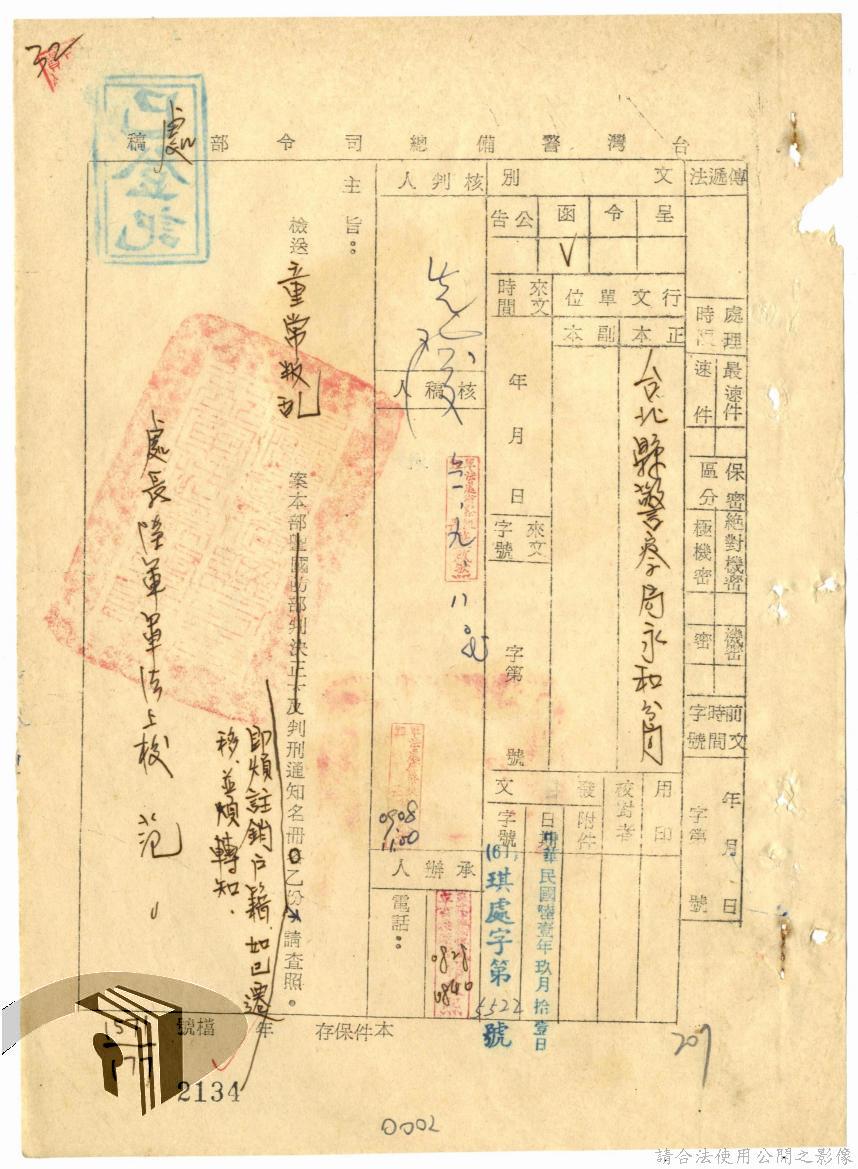 台灣警備總司令部處稿
傳遞法
處理時限
最速件
速件
保密區分
絕對機密
極機密
機密
密
前文時間字號
年月日
字第號
文別
呈
令
函
V
公告
行文單位
正本
台北縣警察局永和分局
副本
來文時間
年月日
來文字號
字第號
用印
校對者
發文
附件
日期
中華民國陸壹年玖月拾壹日
字號
(61)琪處字第5522號
核判人
核稿人
六一、九、八
0908
1100
承辦人
電話：
0828
0840
主旨：
檢送童常叛亂案本部暨國防部判決正本及判刑通知名冊乙份，請查照。
即煩註銷戶籍，如已遷移，並煩轉知。
處長陸軍軍法上校范
已登記
本件保存年
檔號
1571
177
2134
207
32
0002
請合法使用公開之影像